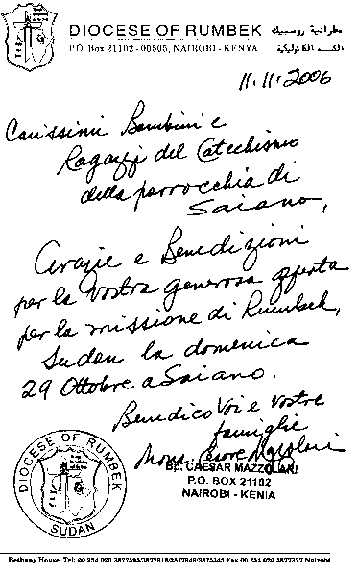 DIOCESE OF RUMBEK
P.O. Box 21102 - 00505, NAIROBI - KENYA
مطرانية رومبيك
الكاثوليكية
11.11.2006
Carissimi Bambini e
Ragazzi del Catechismo
della parrocchia di
Saiano,
Grazie e Benedizioni
per la vostra generosa offerta
per la missione di Rumbek,
Sudan la domenica
29 Ottobre a Saiano.
Benedico Voi e vostre
famiglie
Mons. Cesare Mazzolari
BP. CAESAR MAZZOLARI
P.O. BOX 21102
NAIROBI - KENIA
DIOCESE OF RUMBEK
SUDAN
Bethany House Tel:
Nairobi